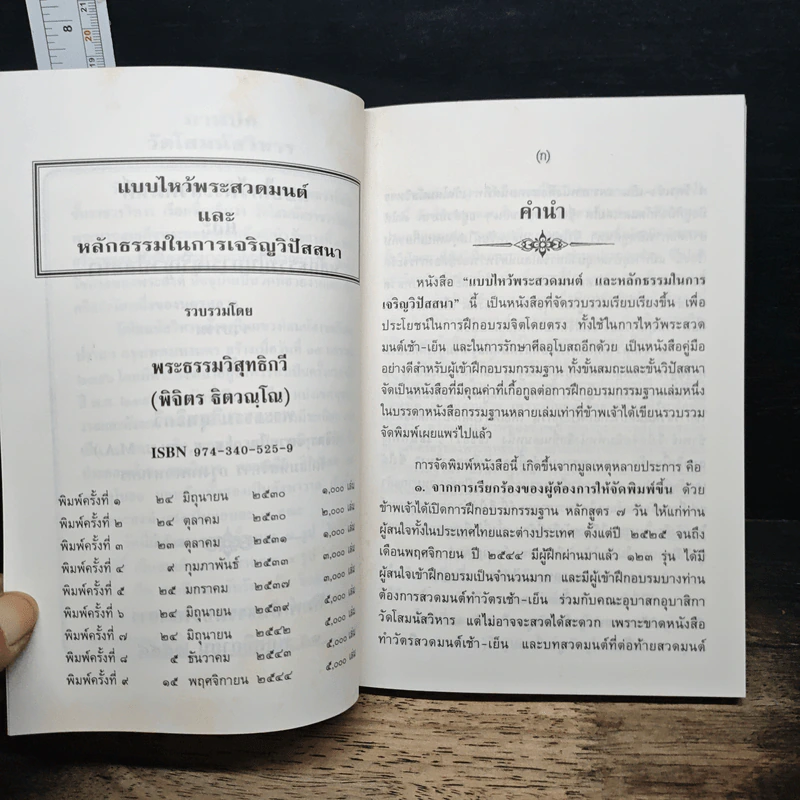 8
20
21
19
แบบไหว้พระสวดมนต์
และ
หลักธรรมในการเจริญวิปัสสนา
รวบรวมโดย
พระธรรมวิสุทธิกวี
(พิจิตร ฐิตวณฺโณ)
ISBN 974-340-525-9
พิมพ์ครั้งที่ ๑ ๒๔ มิถุนายน ๒๕๓๐ ๑,๐๐๐ เล่ม
พิมพ์ครั้งที่ ๒ ๒๔ ตุลาคม ๒๕๓๐ ๒,๐๐๐ เล่ม
พิมพ์ครั้งที่ ๓ ๒๓ ตุลาคม ๒๕๓๑ ๑,๐๐๐ เล่ม
พิมพ์ครั้งที่ ๔ ๙ กุมภาพันธ์ ๒๕๓๓ ๓,๐๐๐ เล่ม
พิมพ์ครั้งที่ ๕ ๒๕ มกราคม ๒๕๓๗ ๓,๐๐๐ เล่ม
พิมพ์ครั้งที่ ๖ ๒๔ มิถุนายน ๒๕๓๙ ๕,๐๐๐ เล่ม
พิมพ์ครั้งที่ ๗ ๒๔ มิถุนายน ๒๕๔๒ ๕,๐๐๐ เล่ม
พิมพ์ครั้งที่ ๘ ๕ ธันวาคม ๒๕๔๓ ๕,๐๐๐ เล่ม
พิมพ์ครั้งที่ ๙ ๑๕ พฤศจิกายน ๒๕๔๔ ๕,๐๐๐ เล่ม
(ก)
คำนำ
หนังสือ "แบบไหว้พระสวดมนต์ และหลักธรรมในการ
เจริญวิปัสสนา" นี้ เป็นหนังสือที่จัดรวบรวมเรียบเรียงขึ้น เพื่อ
ประโยชน์ในการฝึกอบรมจิตโดยตรง ทั้งใช้ในการไหว้พระสวด
มนต์เช้า-เย็น และในการรักษาศีลอุโบสถอีกด้วย เป็นหนังสือคู่มือ
อย่างดีสำหรับผู้เข้าฝึกอบรมกรรมฐาน ทั้งขั้นสมถะและขั้นวิปัสสนา
จัดเป็นหนังสือที่มีคุณค่าที่เกื้อกูลต่อการฝึกอบรมกรรมฐานเล่มหนึ่ง
ในบรรดาหนังสือกรรมฐานหลายเล่มเท่าที่ข้าพเจ้าได้เขียนรวบรวม
จัดพิมพ์เผยแพร่ไปแล้ว
การจัดพิมพ์หนังสือนี้ เกิดขึ้นจากมูลเหตุหลายประการ คือ
๑. จากการเรียกร้องของผู้ต้องการให้จัดพิมพ์ขึ้น ด้วย
ข้าพเจ้าได้เปิดการฝึกอบรมกรรมฐาน หลักสูตร ๗ วัน ให้แก่ท่าน
ผู้สนใจทั้งในประเทศไทยและต่างประเทศ ตั้งแต่ปี ๒๕๒๕ จนถึง
เดือนพฤศจิกายน ปี ๒๕๔๔ มีผู้ฝึกผ่านมาแล้ว ๑๒๓ รุ่น ได้มี
ผู้สนใจเข้าฝึกอบรมเป็นจำนวนมาก และมีผู้เข้าฝึกอบรมบางท่าน
ต้องการสวดมนต์ทำวัตรเช้า-เย็น ร่วมกับคณะอุบาสกอุบาสิกา
วัดโสมนัสวิหาร แต่ไม่อาจจะสวดได้สะดวก เพราะขาดหนังสือ
ทำวัตรสวดมนต์เช้า-เย็น และบทสวดมนต์ที่ต่อท้ายสวดมนต์